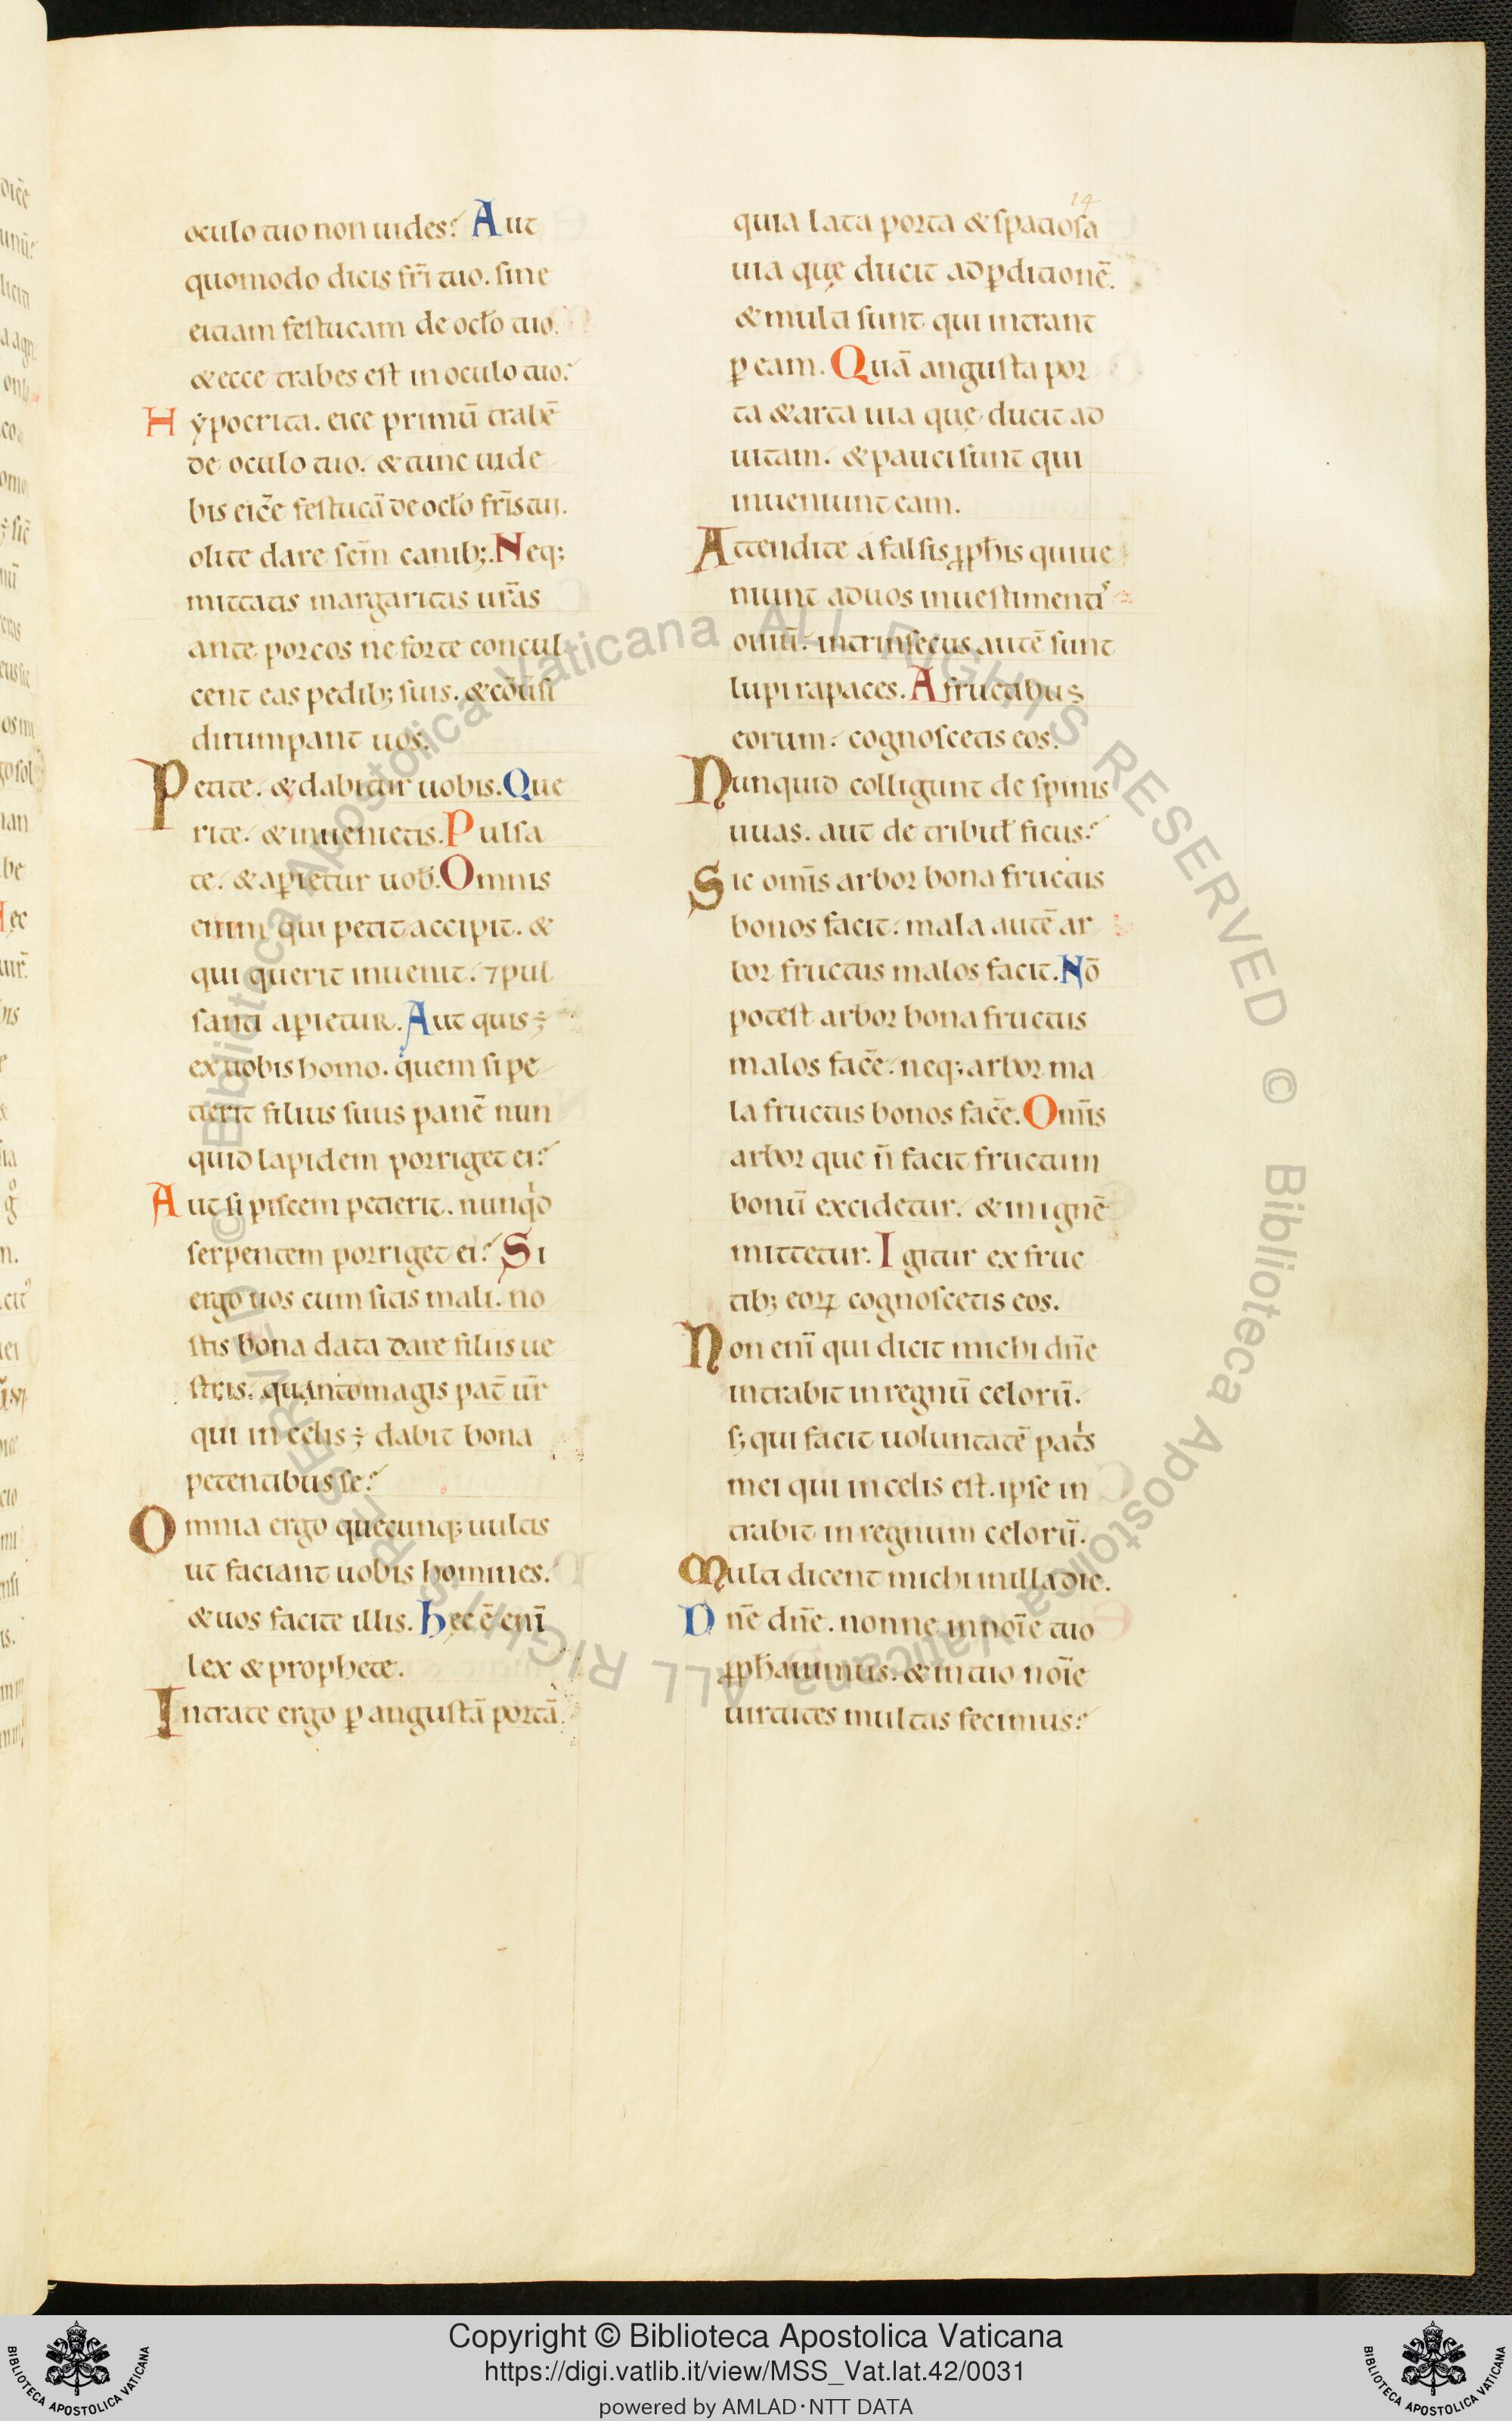 14
oculo tuo non uides? Aut
quomodo dicis frī tuo. sine
eiciam festucam de ocło tuo.
& ecce trabes est in oculo tuo?
Hẏpocrita. eice primū trabē
de oculo tuo. & tunc uide
bis eicē festucā de ocło frīs tui.
olite dare scm̄ canib;. Neq;
mittatis margaritas urās
ante porcos ne forte concul
cent eas pedib; suis. & cōūsi
dirumpant uos.
Petite. & dabitur uobis. Que
rite. & inuenietis. Pulsa
te. & aꝑietur uob̄. Omnis
enim qui petit accipit. &
qui querit inuenit. ⁊ pul
santi aꝑietur. Aut quis ÷
ex uobis homo. quem si pe
tierit filius suus panē nun
quid lapidem porriget ei?
Aut si piscem petierit. nunqͥd
serpentem porriget ei? Si
ergo uos cum sitis mali. no
stis bona data dare filiis ue
stris. quanto magis pat̄ ur̄
qui in celis ÷ dabit bona
petentibus se?
Omnia ergo quecunq; uultis
ut faciant uobis homines.
& uos facite illis. Hec ē enī
lex & prophete.
Intrate ergo ꝑ angustā portā.
quia lata porta & spatiosa
uia que ducit ad ꝑditionē.
& multi sunt qui intrant
ꝑ eam. Quā angusta por
ta & arta uia que ducit ad
uitam. & pauci sunt qui
inueniunt eam.
Attendite a falsis ꝓph̄is qui ue
niunt ad uos in uestimentis
ouiū. intrinsecus autē sunt
lupi rapaces. A fructibus
eorum. cognoscetis eos.
Nunquid colligunt de spinis
uuas. aut de tribuł ficus?
Sic omīs arbor bona fructus
bonos facit. mala autē ar
bor fructus malos facit. Nō
potest arbor bona fructus
malos facē. neq; arbor ma
la fructus bonos facē. Omīs
arbor que n̄ facit fructum
bonū excidetur. & in ignē
mittetur. Igitur ex fruc
tib; eoꝝ cognoscetis eos.
Non enī qui dicit michi dn̄e
intrabit in regnū celorū.
s; qui facit uoluntatē patͥs
mei qui in celis est. ipse in
trabit in regnum celorū.
Multi dicent michi in illa die.
Dn̄e dn̄e. nonne in noīe tuo
ꝓph̄auimus. & in tuo noīe
uirtutes multas fecimus?
© Biblioteca Apostolica Vaticana ALL RIGHTS RESERVED © Biblioteca Apostolica Vaticana ALL RIGHTS RESERVED
Copyright © Biblioteca Apostolica Vaticana
https://digi.vatlib.it/view/MSS_Vat.lat.42/0031
powered by AMLAD·NTT DATA
BIBLIOTECA APOSTOLICA VATICANA
BIBLIOTECA APOSTOLICA VATICANA